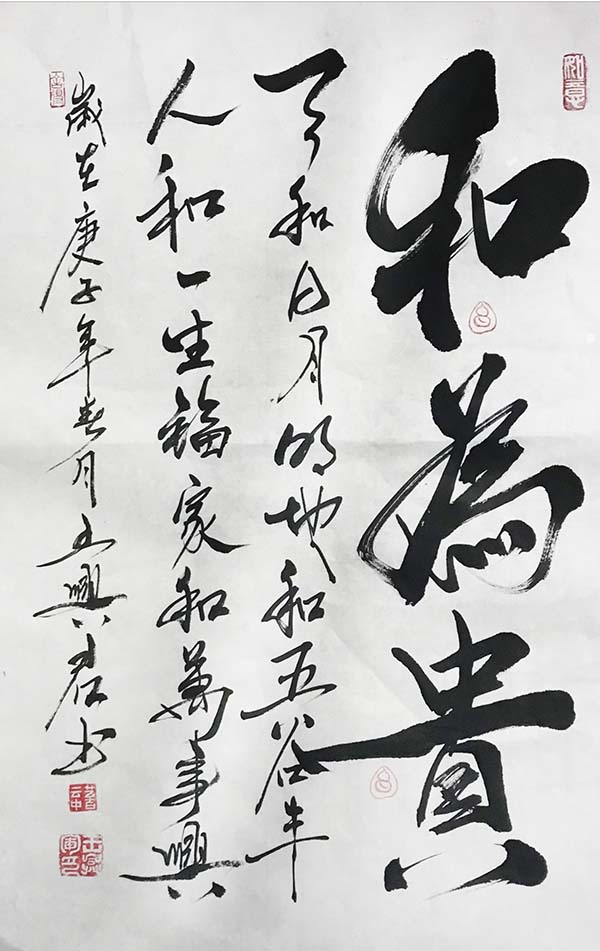 如意
和為貴
天和日月明地和五谷丰
人和一生福家和萬事興
歲在庚子年春月王興君书